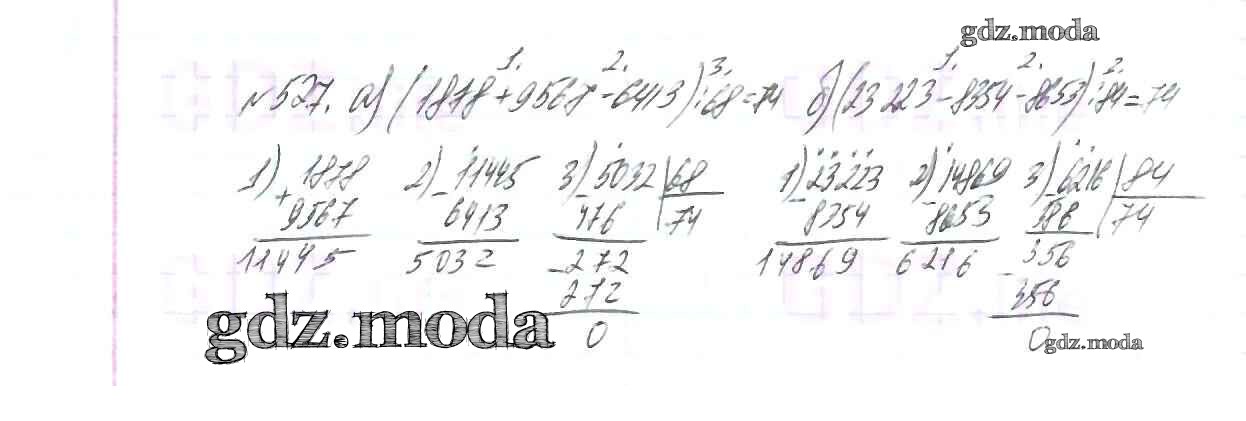 gdz.moda
1. 2. 3. 1. 2. 3.
№527. а) (1878+9567-6413):68=74 б) (23 223-8354-8653):84=74
1) 1878 2) 11445 3) 5032 68 1) 23223 2) 14869 3) 6216 84
+ 9567 - 6413 - 476 74 - 8354 - 8653 - 588 74
11445 5032 -272 14869 6216 - 356
272 356
gdz.moda 0 0 gdz.moda